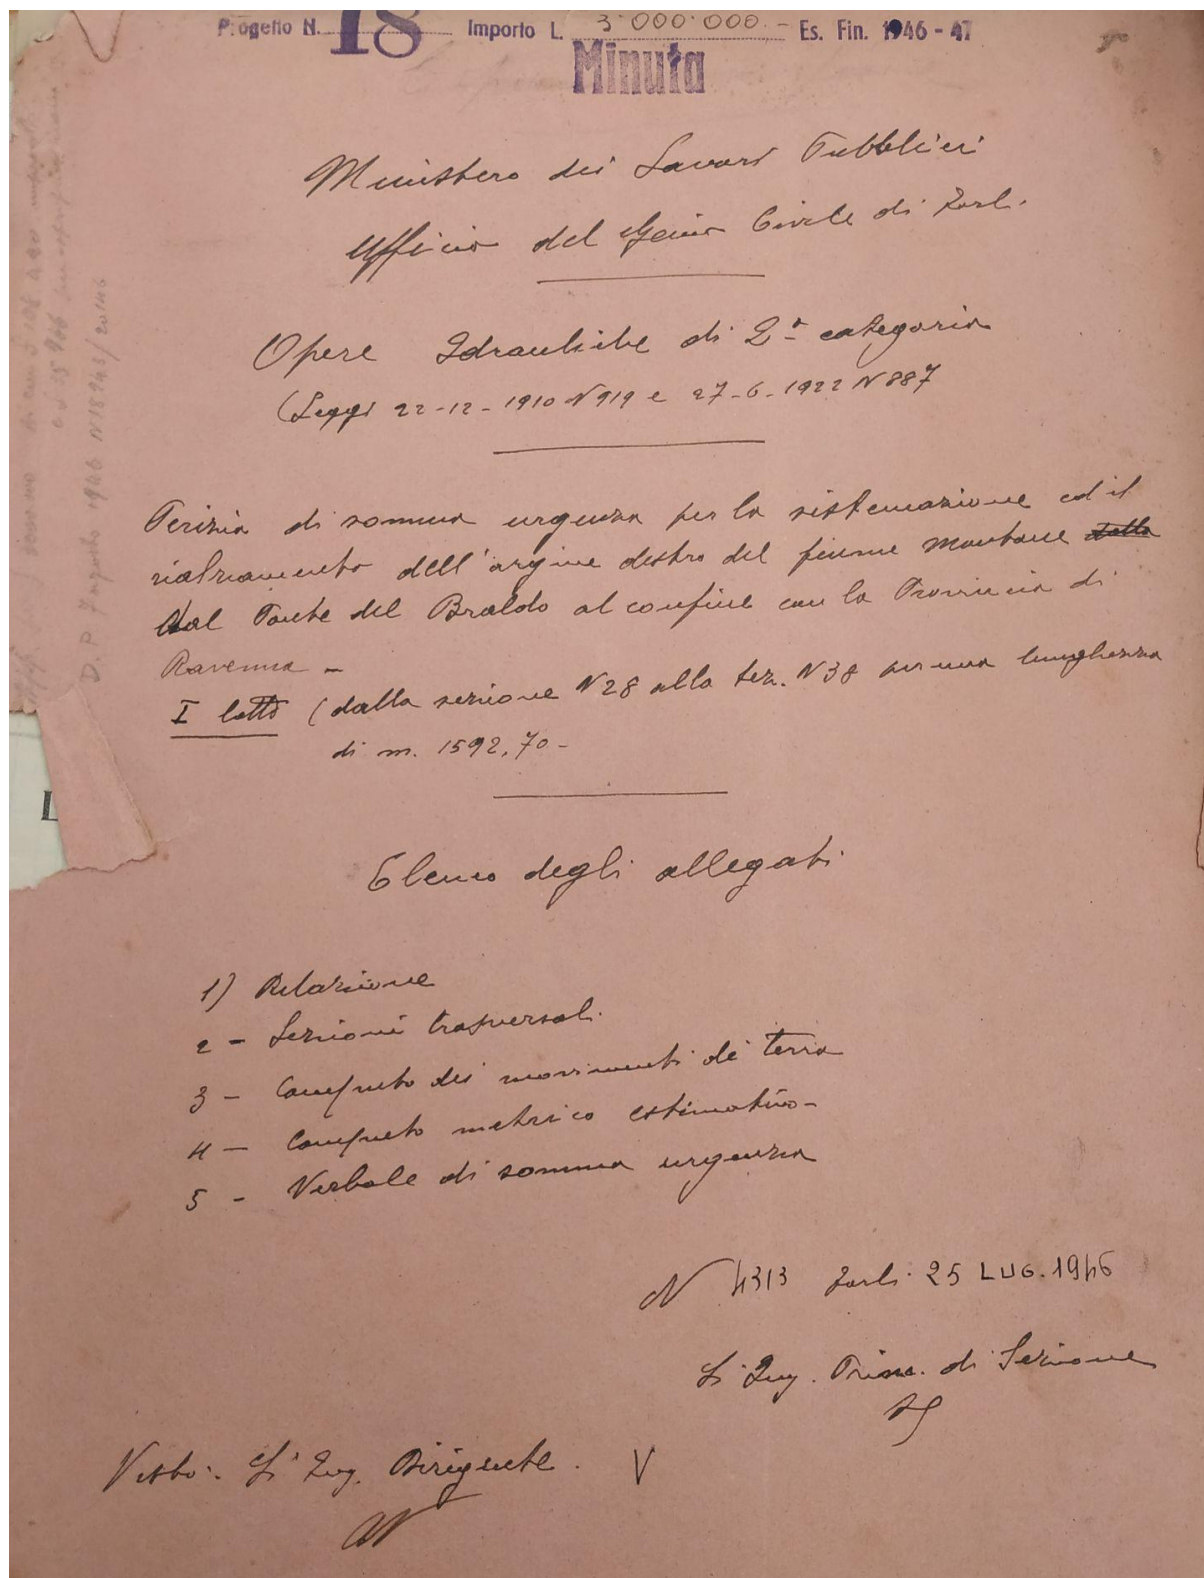 Progetto N. 18 Importo L. 3.000.000.- Es. Fin. 1946-47
Minuta
Ministero dei Lavori Pubblici
Ufficio del Genio Civile di Forlì
Opere Idrauliche di 2ª categoria
(Leggi 22-12-1910 N 919 e 27-6-1922 N 887
Perizia di somma urgenza per la sistemazione ed il
rialzamento dell'argine destro del fiume Montone dalla
dal Ponte del Braldo al confine con la Provincia di
Ravenna -
I lotto (dalla sezione N 28 alla sez. N 38 per una lunghezza
di m. 1592,70 -
Elenco degli allegati
1) Relazione
2 - Sezioni trasversali
3 - Computo dei movimenti di terra
4 - Computo metrico estimativo -
5 - Verbale di somma urgenza
N 4313 Forlì 25 LUG. 1946
L'Ing. Princ. di Sezione
Visto: L'Ing. Dirigente. V
D. P. 7 agosto 1946 N 18243/20146
L